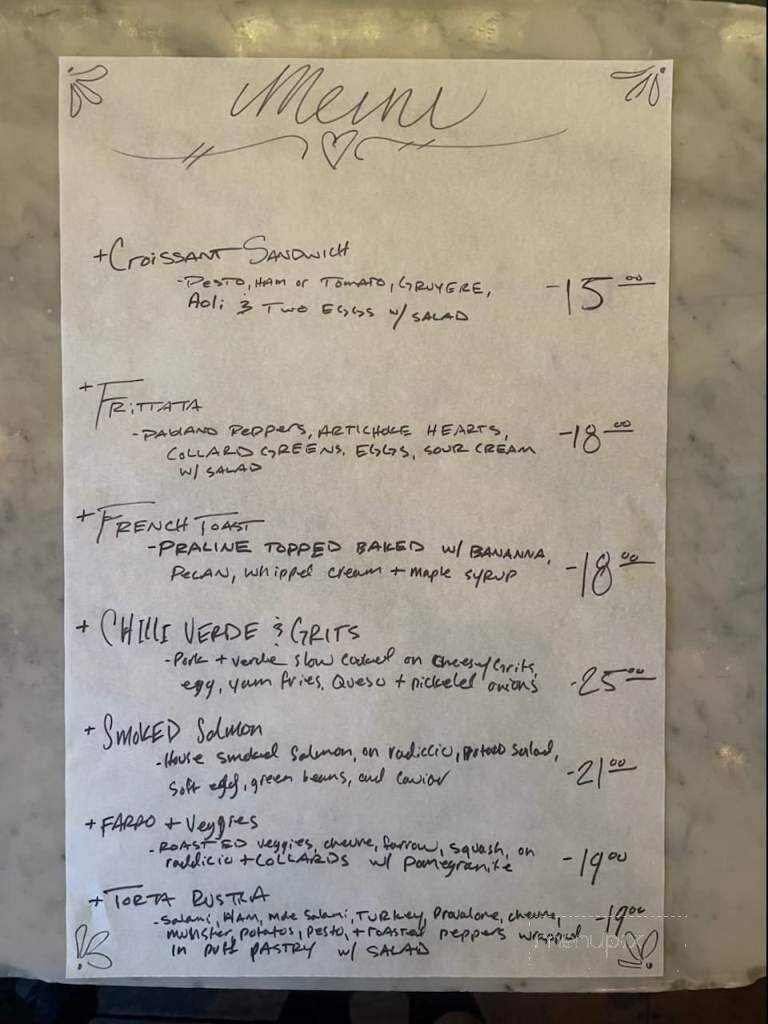 Menu
+ Croissant Sandwich
- Pesto, Ham or Tomato, Gruyere,
Aoli & Two Eggs w/ Salad
-15.00
+ Frittata
- Pablano Peppers, Artichoke Hearts,
Collard Greens, Eggs, Sour Cream
w/ Salad
-18.00
+ French Toast
- Praline Topped Baked w/ Bananna,
Pecan, Whipped cream + maple syrup
-18.00
+ Chilli Verde & Grits
- Pork + verde slow cooked on cheesy Grits,
egg, yam fries, Queso + pickeled onions
-25.00
+ Smoked Salmon
- House smoked salmon, on radiccio, potato salad,
soft egg, green beans, and caviar
-21.00
+ Farro + Veggies
- Roasted veggies, chevre, farrow, squash, on
raddicio + Collards w/ pomegranite
-19.00
+ Torta Rustka
- Salami, Ham, Salami, Turkey, Provalone, chevre,
munster, potatos, pesto, + roasted peppers wrapped
in puff pastry w/ Salad
-19.00
menupix